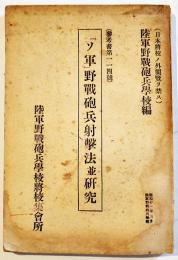 （日本將校ノ外閲覽ヲ禁ス）
陸軍野戰砲兵學校編
（參考書第一一四號）
「ソ」軍野戰砲兵射擊法並研究
陸軍野戰砲兵學校將校集會所